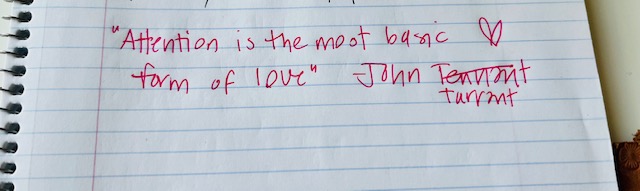 "Attention is the most basic ♡
form of love" - John Tennant
Tarrant